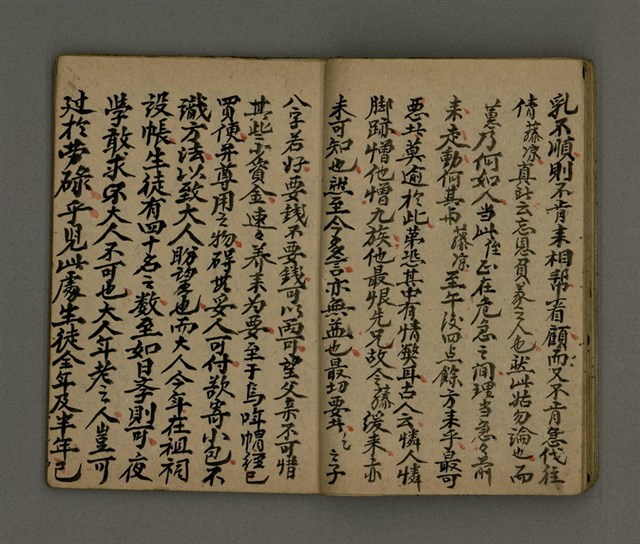 乳不順則不肯来相帮看顧而又不肯急伐往
倩藤凉真此云忘恩負義之人也然此姑勿論也而
蕙乃何如人当此症正在危急之間理当急々前
来走動何其与藤凉至午後四点餘方来乎最可
惡者莫逾於此第恐其中有情弊耳古人云憐人憐
脚跡憎他憎九族他最恨先兄故令藤緩来亦
未可知也然至今多言亦無益也最切要者之子
八字若好要銭不要銭可以両可望父亲不可惜
其些少資金速々养来为要至于烏哖帽経已
買便并尊用之物碍無妥人可付欲寄小包不
識方法以致大人盼望也而大人今年在祖祠
設帳生徒有四十名之数至如日季則可夜
學敢求不大人不可也大人年老之人豈可
过於劳碌乎見此處生徒全年及半年已